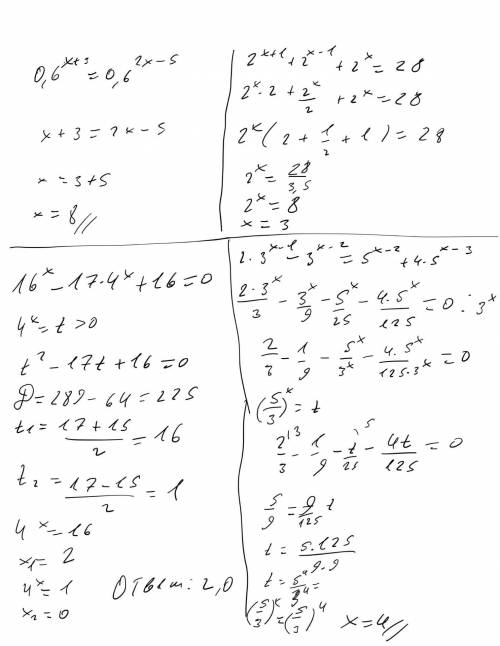 0,6^{x+3} = 0,6^{2x-5}
x + 3 = 2x - 5
x = 3+5
x = 8//
2^{x+1} + 2^{x-1} + 2^x = 28
2^x · 2 + \frac{2^x}{2} + 2^x = 28
2^x (2 + \frac{1}{2} + 1) = 28
2^x = \frac{28}{3,5}
2^x = 8
x = 3
16^x - 17·4^x + 16 = 0
4^x = t > 0
t^2 - 17t + 16 = 0
D = 289 - 64 = 225
t_1 = \frac{17+15}{2} = 16
t_2 = \frac{17-15}{2} = 1
4^x = 16
x_1 = 2
4^x = 1 Ответ: 2,0
x_2 = 0
2·3^{x-1} - 3^{x-2} = 5^{x-2} + 4·5^{x-3}
\frac{2·3^x}{3} - \frac{3^x}{9} - \frac{5^x}{25} - \frac{4·5^x}{125} = 0 : 3^x
\frac{2}{3} - \frac{1}{9} - \frac{5^x}{3^x} - \frac{4·5^x}{125·3^x} = 0
(\frac{5}{3})^x = t
\frac{2^{\backslash 3}}{3} - \frac{1}{9} - \frac{t^{\backslash 5}}{25} - \frac{4t}{125} = 0
\frac{5}{9} = \frac{9}{125} t
t = \frac{5·125}{9·9}
t = \frac{5^4}{3^4} =
(\frac{5}{3})^x = (\frac{5}{3})^4 x = 4//